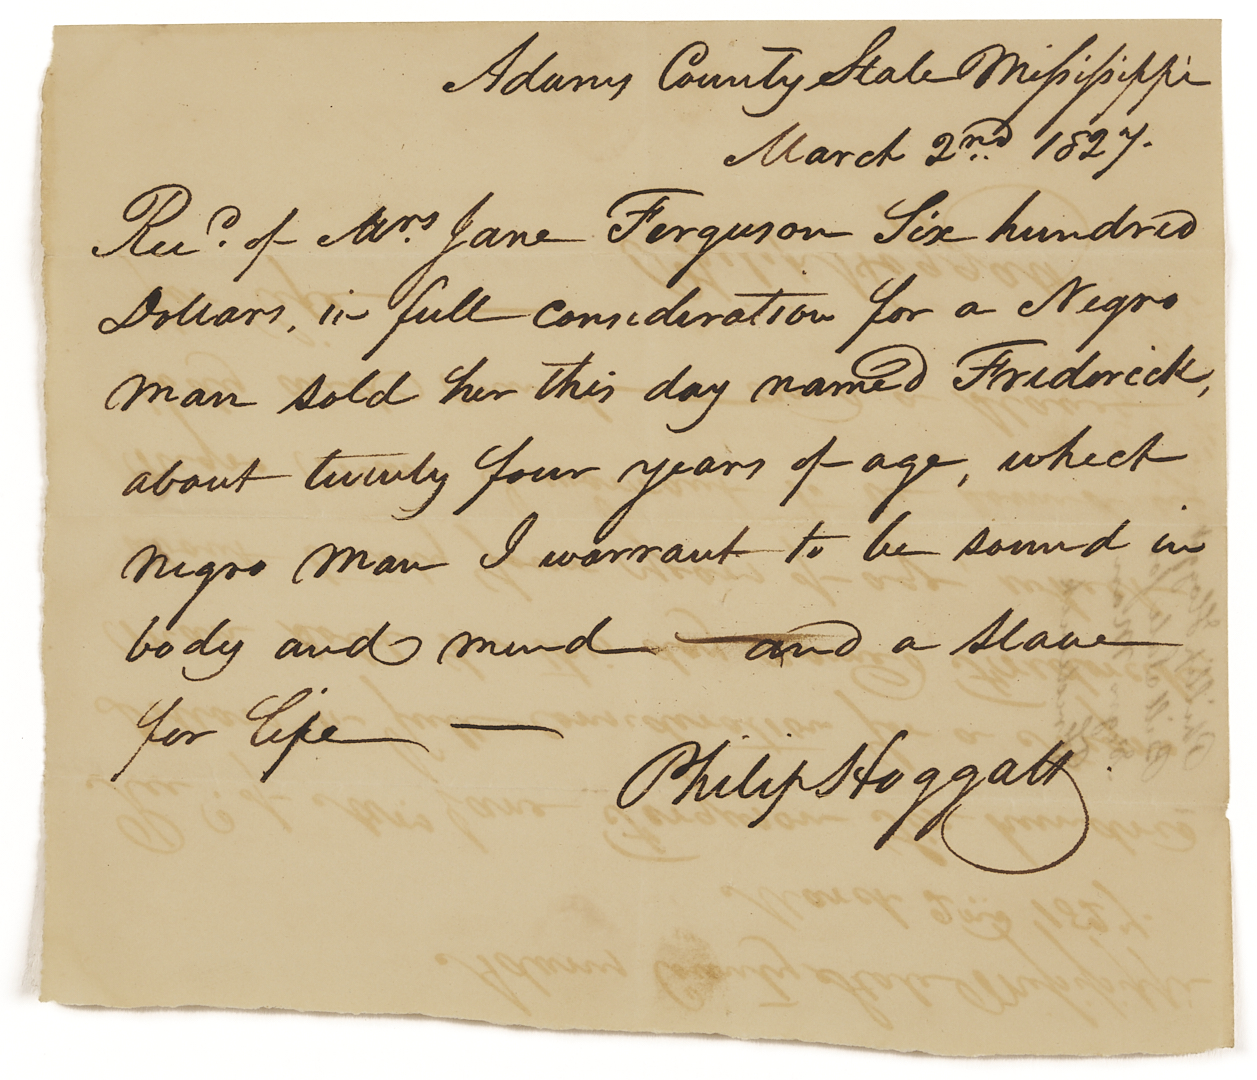 Adams County State Mississippi
March 2nd 1827.
Recd. of Mrs Jane Ferguson Six hundred
Dollars, in full consideration for a Negro
man sold her this day named Frederick,
about twenty four years of age, which
negro man I warrant to be sound in
body and mind and a slave
for life —
Philip Hoggatt